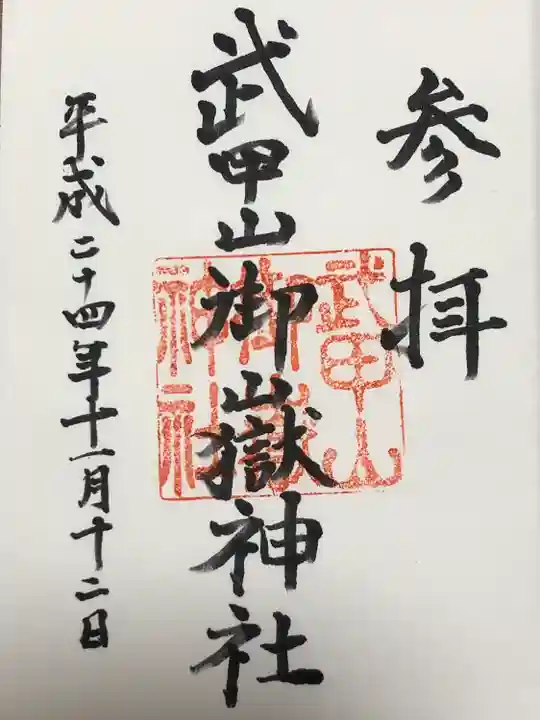 参拝
武甲山御嶽神社
武甲山
御嶽
神社
平成二十四年十一月十二日